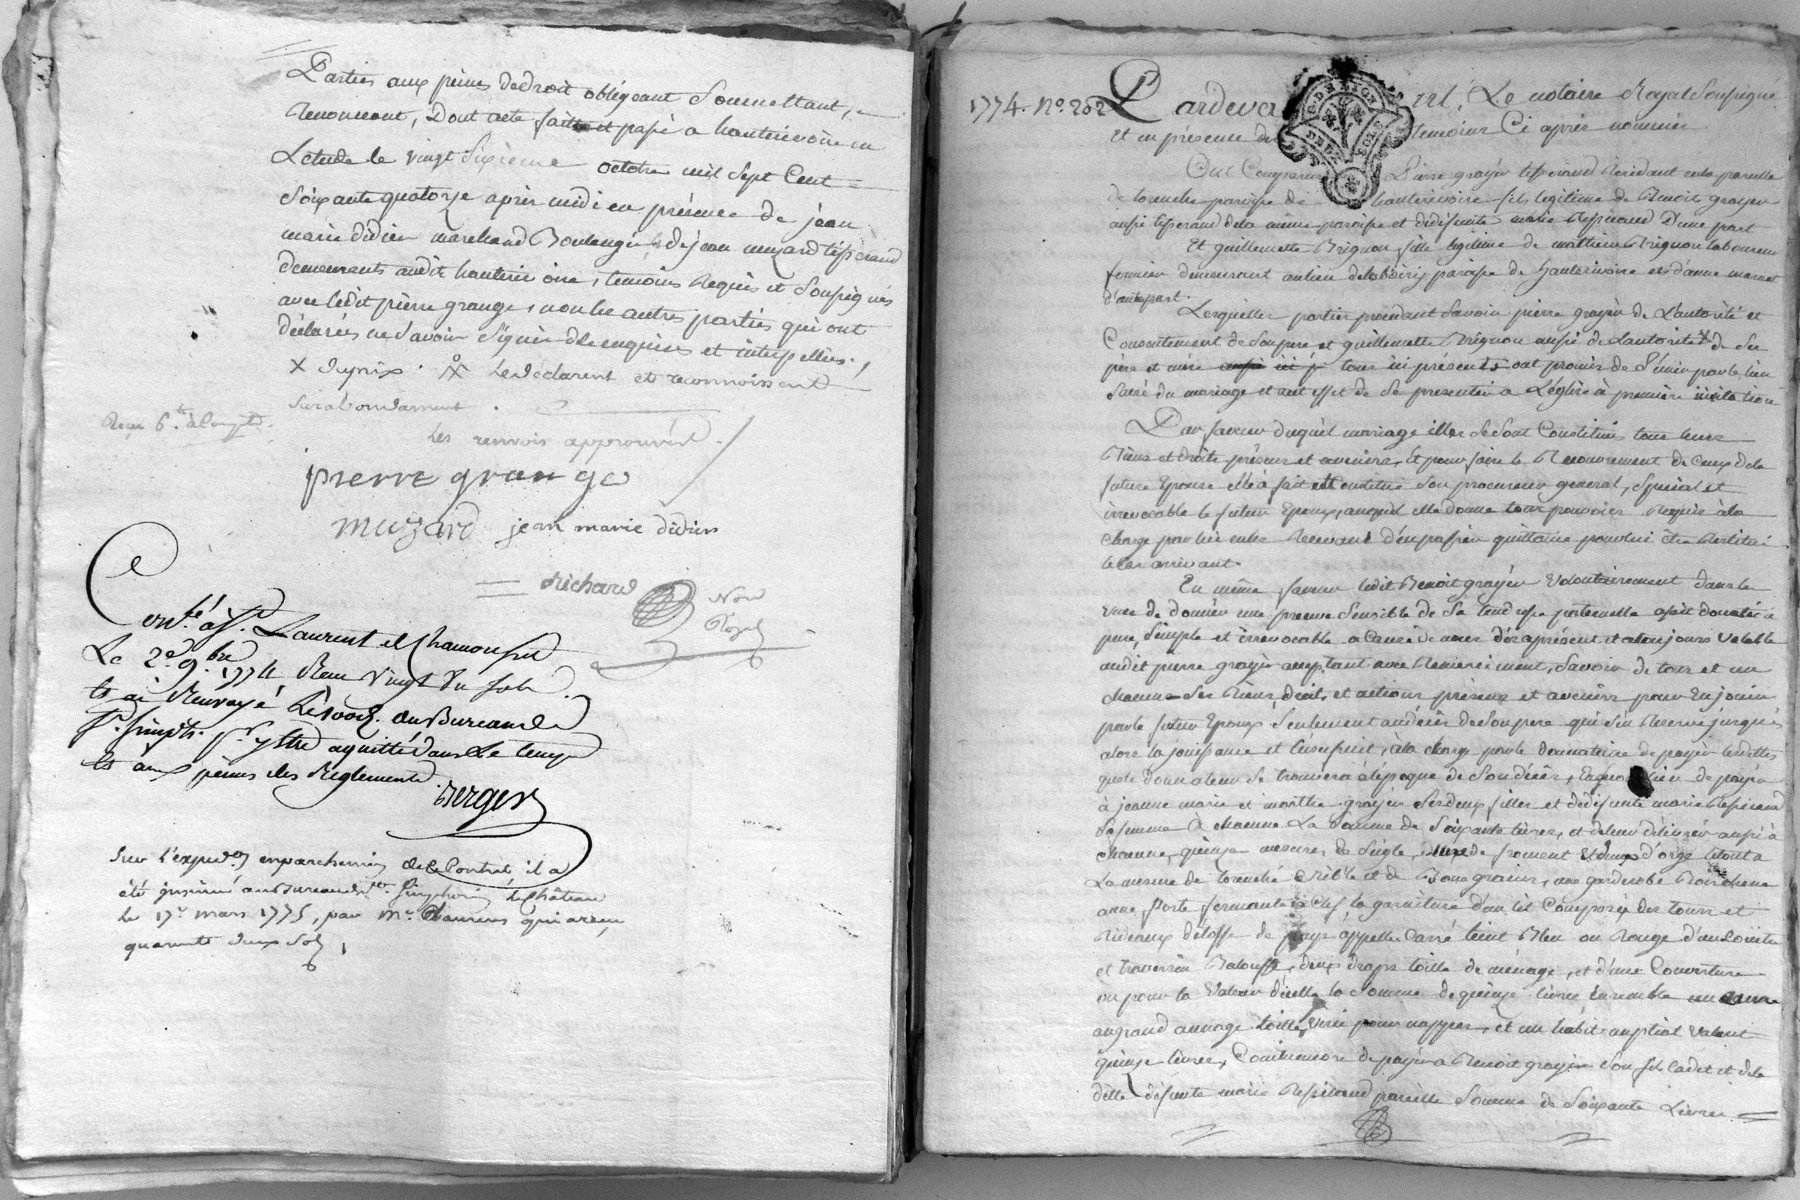 Parties aux peines de droit obligeant Soumettant,
Renoncent, Dont acte fait et passé a hauterivoire en
Letude le vingt Sixieme octobre mil Sept Cent
Soixante quatorze après midi en présence de jean
marie didier marchand Boulanger & de jean muzard tisserand
demeurants audit hauterivoire, temoins Requis et Soussignés
avec ledit pierre grange, non les autres parties qui ont
déclarées ne Savoir Signer de ce enquises et interpellées.
le déclarent et reconnoissent
Surabondament.
Reçu 6.
les renvois approuvés.
pierre grange
muzard jean marie didier
Richard Nore Royal
Conlé à St. Laurent el Chamousset
Le 2e. 9bre 1774 Reçu vingt un sols
et ai Renvoyé au Bureau de
St. Simph. acquitté dans le temps
et aux peines des Reglements
Berger
Sur l'expedon en parchemin de le Contrat il a
été insinué au Bureau de St. Simphorien le Château
le 17e mars 1775, par Mr. qui a reçu
quarante deux Sols
1774. No. 262 Pardevant Le notaire Royal Soussigné
Et en présence des temoins Ci après nommés
Out Comparu Pierre grayer tisserand Residant en la parcelle
de paroisse de hauterivoire fils legitime de Benoit grayer
aussi tisserand de la même paroisse et de défunte marie Respicaud D'une part
Et guillemette Brignon fille legitime de mathieu Brignon laboureur
fermier demeurant au lieu de paroisse de hauterivoire et d'anne
d'autre part.
Lesquelles parties procedant Savoir pierre grayer de L'autorité et
Consentement de Son pere et guillemette Brignon aussi de L'autorité de Ses
père et mère tous ici présents ont promis de S'unir par le lien
Sacré du mariage et a cet effet de Se presenter a L'église à première invitation
En faveur duquel mariage Se Sont Constitués tous leurs
Biens et droits présens et avenirs, et pour faire le Recouvrement de Ceux de la
future Epouse elle a fait et constitué Son procureur general, Special et
irrevocable le futur Epoux, auquel elle donne tous pouvoirs Requis a la
charge par lui en les Recevant d'en passer quittance pour lui être Restitué
le Cas arrivant.
En même faveur ledit Benoit grayer volontairement dans la
vue de donner une preuve Sensible de Sa tendresse paternelle a fait donation
pure, Simple et irrevocable a Cause de noces dès apresent et a toujours valable
audit pierre grayer acceptant avec Remerciment, Savoir de tous et un
chacun Ses Biens, droits, et actions présens et avenirs pour En jouir
par le futur Epoux, Seulement au décès de Son pere qui S'en Reserve jusques
alors la jouissance et l'usufruit, a la charge par le donnataire de payer les dettes
que le donnateur Se trouvera à l'époque de Son décès, Et de payer
à jeanne marie et marthe grayer Ses deux filles et de défunte marie Respicaud
Sa femme à chacune La Somme de Soixante livres, et de leur délivrer aussi à
chacune, quinze mesures de Seigle, de froment Et deux d'orge le tout a
La mesure de et de Bons grains, une garderobe
a une porte fermante à Clef, la garniture d'un lit Composée des tours et
Rideaux d'étoffe de pays appellée Carré teint Bleu ou Rouge
et traversin Balouffe, deux draps toille de ménage, et d'une Couverture
ou pour la valeur d'icelle la Somme de quinze livres
au grand aunage toille pour nappes, et un habit nuptial valant
quinze livres, Comme encore de payer a Benoit grayer Son fils Cadet et de la
dite défunte marie Respicaud pareille Somme de Soixante Livres